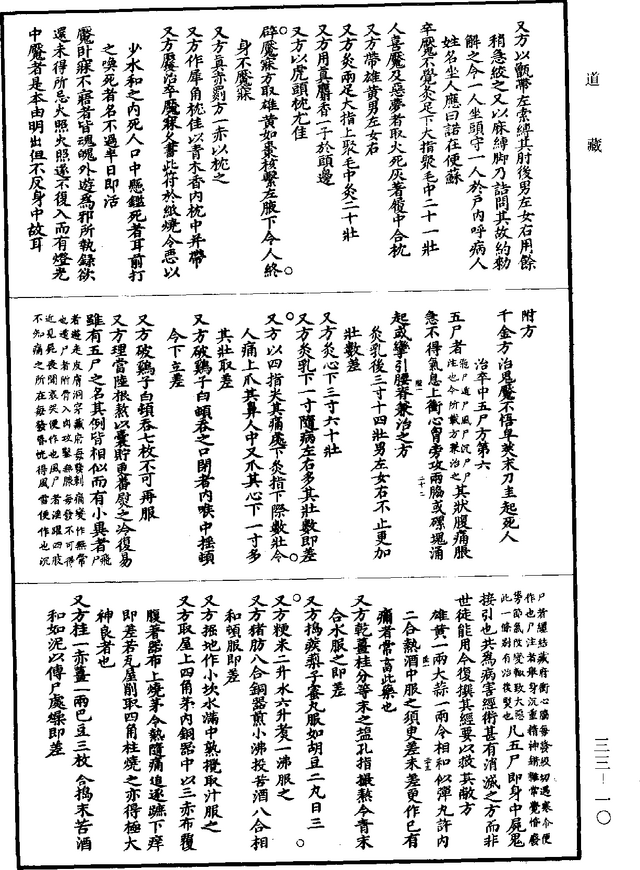 道藏
又方以甑帶左索縛其肘後男左女右用餘
稍急絞之又以麻縛脚乃詰問其故約勑
解之令一人坐頭守一人於戶內呼病人
姓名坐人應曰諾在便蘇
卒魘不覺灸足下大指聚毛中二十一壯
人喜魘及惡夢者取火死灰著履中合枕
又方帶雄黃男左女右
又方灸兩足大指上聚毛中灸二十壯
又方用真麝香一子於頭邊
又方以虎頭枕尤佳
辟魘寐方取雄黃如棗核繫左腋下令人終
身不魘寐
又方真赤罽方一赤以枕之
又方作犀角枕佳以青木香內枕中并帶
又方魘治卒魘寐久書此符於紙燒令悉以
少水和之內死人口中懸鑑死者耳前打
之喚死者名不過半日即活
魘臥寐不寤者皆魂魄外遊為邪所執錄欲
還未得所忌火照火照遂不復入而有燈光
中魘者是本由明出但不反身中故耳
附方
千金方治鬼魘不悟皁莢末刀圭起死人
治卒中五尸方第六
五尸者飛尸遁尸風尸沉尸尸注也今所載方兼治之其狀腹痛脹
急不得氣息上衝心胷旁攻兩脇或磥塊涌
起或攣引腰脊兼治之方
灸乳後三寸十四壯男左女右不止更加
壯數差
又方灸心下三寸六十壯
又方灸乳下一寸隨病左右多其壯數即差
又方以四指尖其痛處下灸指下際數壯令
人痛上爪其鼻人中又爪其心下一寸多
其壯取差
又方破鷄子白頓吞之口閉者內喉中搖頓
令下立差
又方破鷄子白頓吞七枚不可再服
又方理當陸根熬以囊貯更番熨之冷復易
雖有五尸之名其例皆相似而有小異者飛尸
者遊走皮膚洞穿藏府每發刺痛變作無常
也遁尸者附骨入肉攻鑿血脉每發不可得
近見死喪聞哀哭便作也風尸者淫躍四肢
不知痛之所在每發昏恍得風雪便作也沉
尸者纏結藏府衝心脇每發絞切遇寒冷便
作也尸注者舉身沉重精神錯雜常覺惛廢
每節氣改變輒致大惡此一條別有治後熨也凡五尸即身中屍鬼
接引也共為病害經術甚有消滅之方而非
世徒能用今復撰其經要以救其敝方
雄黃一兩大蒜一兩令相和似彈丸許內
二合熱酒中服之須更差未差更作已有
痛者常畜此藥也
又方乾薑桂分等末之塩孔指撮熬令青末
合水服之即差
又方搗蒺梨子蜜丸服如胡豆二丸日三
又方粳米二升水六升煑一沸服之
又方猪肪八合銅器煎小沸投苦酒八合相
和頓服即差
又方掘地作小坎水滿中熟攪取汁服之
又方取屋上四角茅內銅器中以三赤布覆
腹著器布上燒茅令熱隨痛追逐蹠下痒
即差若瓦屋削取四角柱燒之亦得極大
神良者也
又方桂一赤薑一兩巴豆三枚合搗末苦酒
和如泥以傅尸處燥即差
三三—一〇